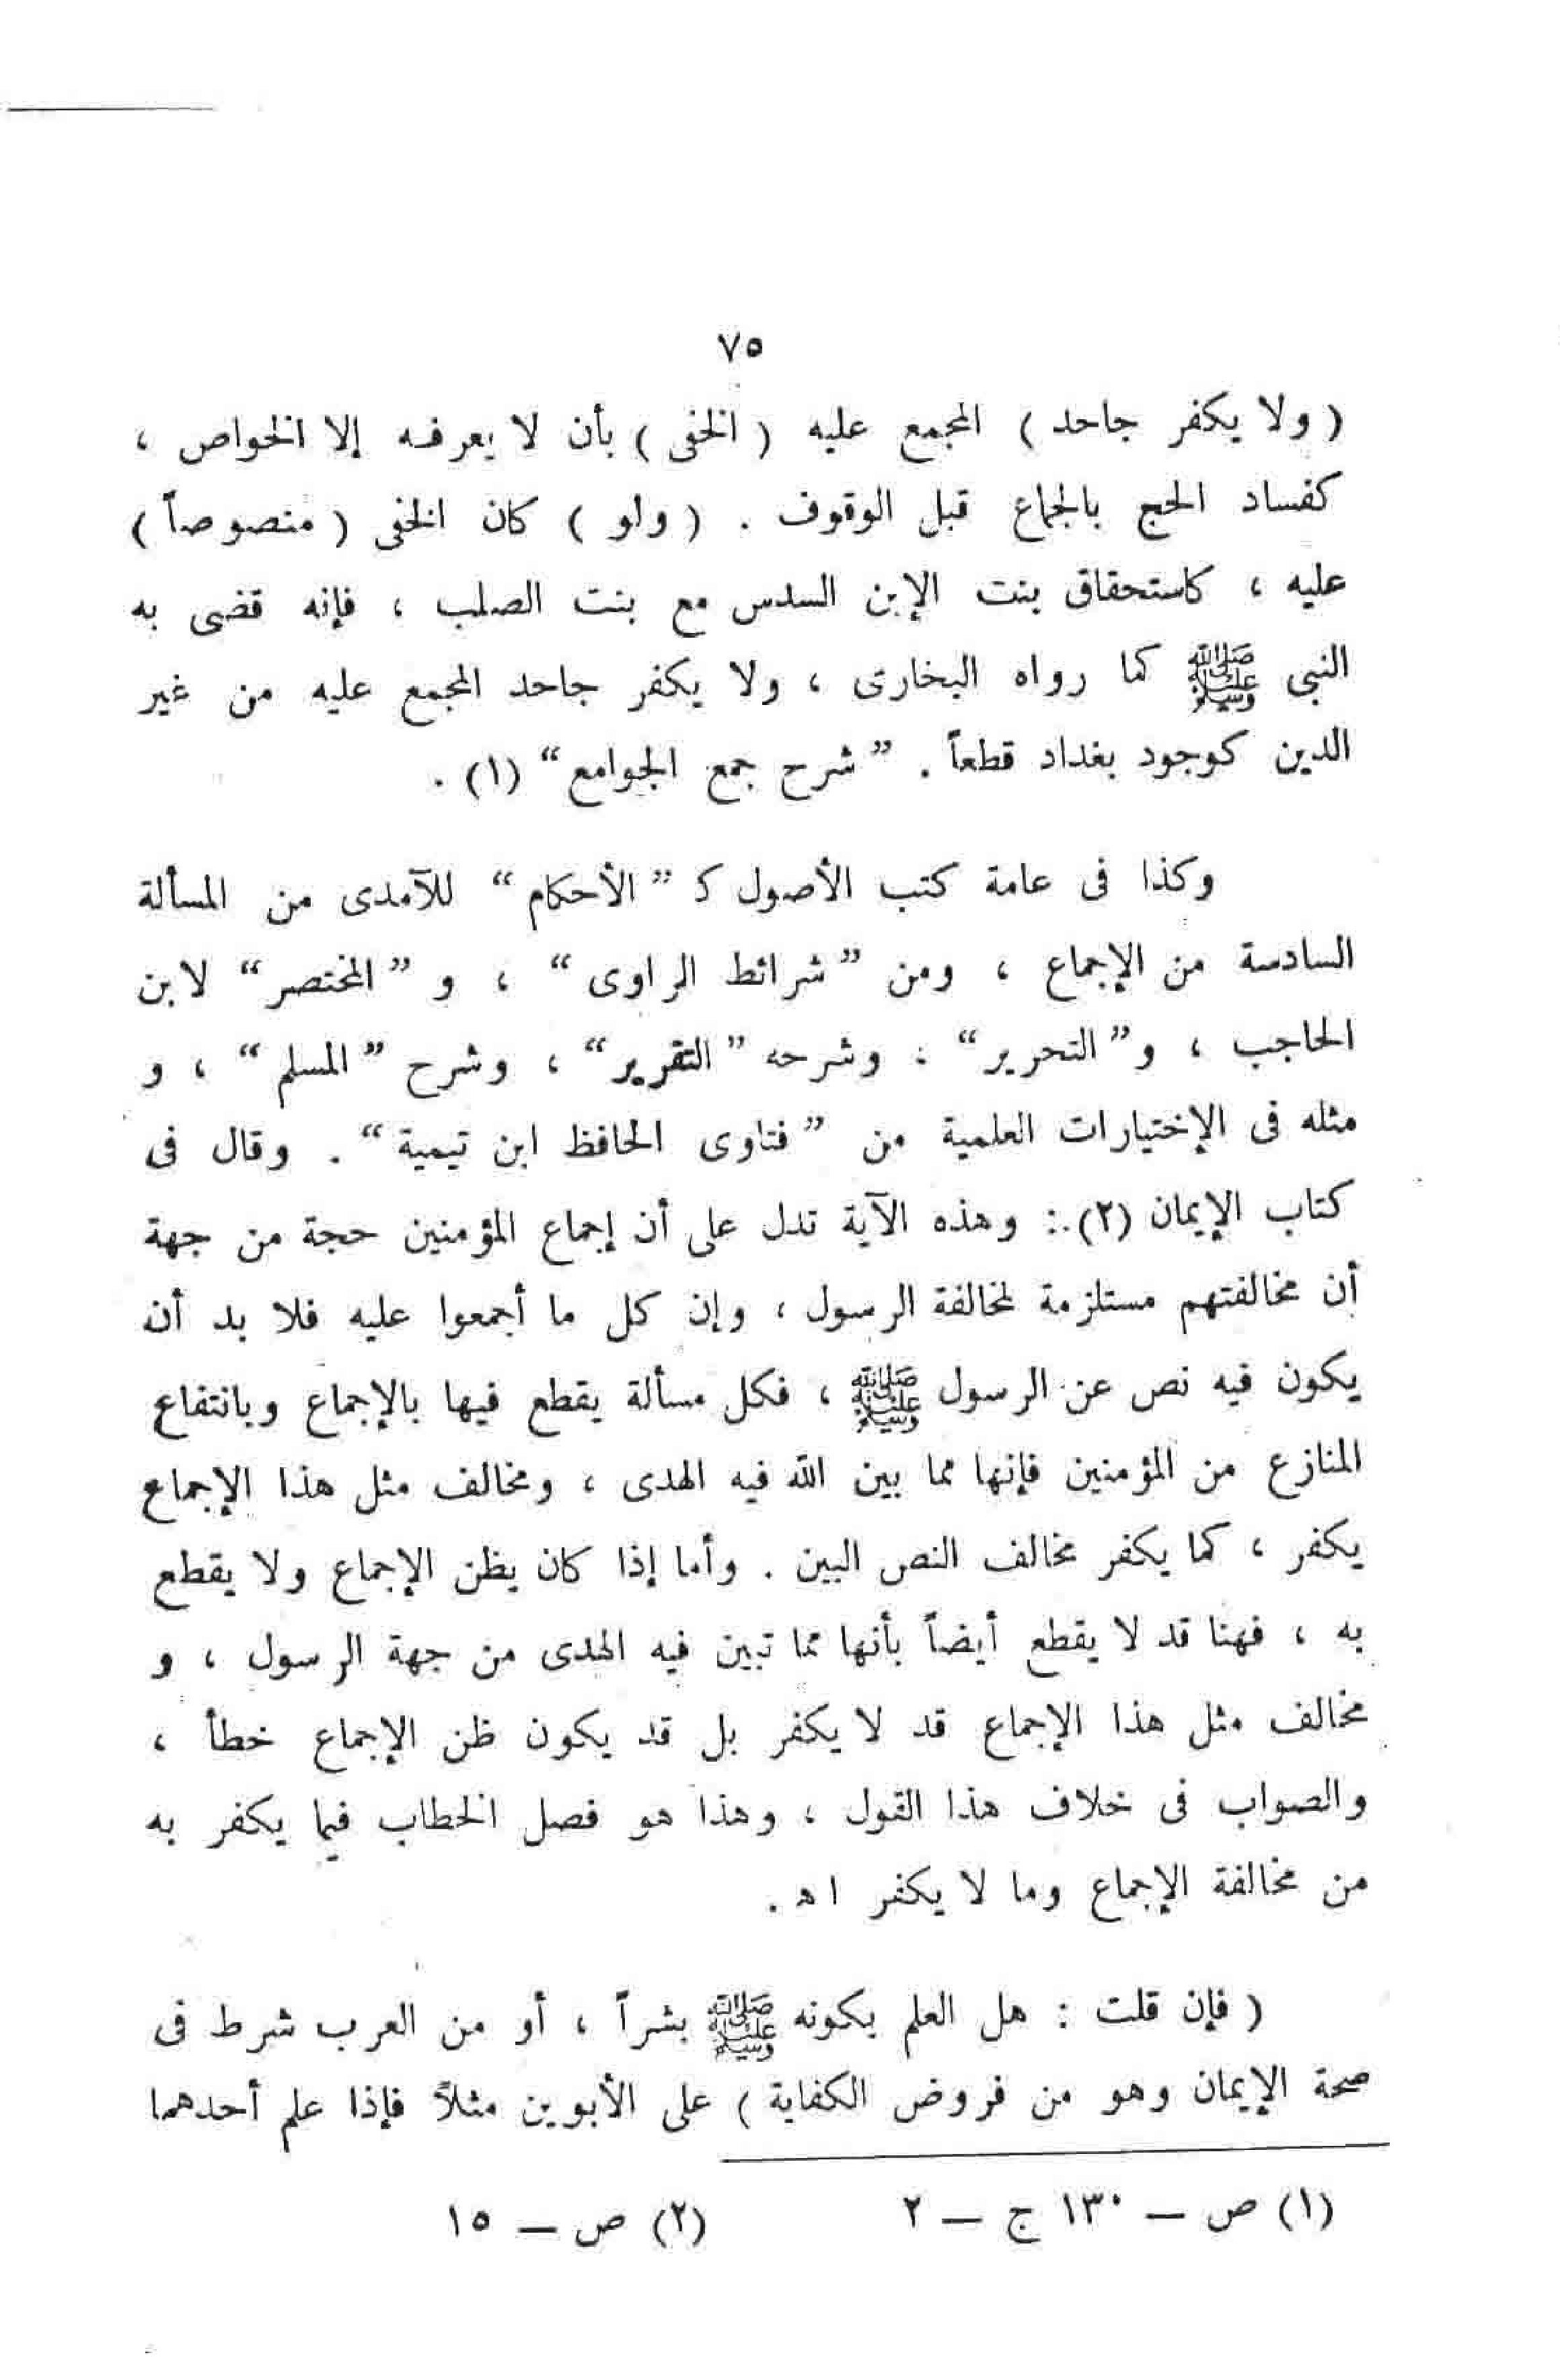 ٧٥
( ولا يكفر جاحد ) المجمع عليه ( الخفى ) بأن لا يعرفه إلا الخواص ،
كفساد الحج بالجماع قبل الوقوف . ( ولو ) كان الخفى ( منصوصاً )
عليه ، كاستحقاق بنت الإبن السدس مع بنت الصلب ، فإنه قضى به
النبى ﷺ كما رواه البخارى ، ولا يكفر جاحد المجمع عليه من غير
الدين كوجود بغداد قطعاً . ”شرح جمع الجوامع“ (١) .
وكذا فى عامة كتب الأصول كـ ”الأحكام“ للآمدى من المسألة
السادسة من الإجماع ، ومن ”شرائط الراوى“ ، و ”المختصر“ لابن
الحاجب ، و”التحرير“ : وشرحه ”التقرير“ ، وشرح ”المسلم“ ، و
مثله فى الإختيارات العلمية من ”فتاوى الحافظ ابن تيمية“ . وقال فى
كتاب الإيمان (٢).: وهذه الآية تدل على أن إجماع المؤمنين حجة من جهة
أن مخالفتهم مستلزمة لمخالفة الرسول ، وإن كل ما أجمعوا عليه فلا بد أن
يكون فيه نص عن الرسول ﷺ ، فكل مسألة يقطع فيها بالإجماع وبانتفاع
المنازع من المؤمنين فإنها مما بين الله فيه الهدى ، ومخالف مثل هذا الإجماع
يكفر ، كما يكفر مخالف النص البين . وأما إذا كان يظن الإجماع ولا يقطع
به ، فهنا قد لا يقطع أيضاً بأنها مما تبين فيه الهدى من جهة الرسول ، و
مخالف مثل هذا الإجماع قد لا يكفر بل قد يكون ظن الإجماع خطأ ،
والصواب فى خلاف هذا القول ، وهذا هو فصل الخطاب فيما يكفر به
من مخالفة الإجماع وما لا يكفر اه .
( فإن قلت : هل العلم بكونه ﷺ بشراً ، أو من العرب شرط فى
صحة الإيمان وهو من فروض الكفاية ) على الأبوين مثلاً فإذا علم أحدهما
(١) ص ــ ١٣٠ ج ــ ٢ (٢) ص ــ ١٥